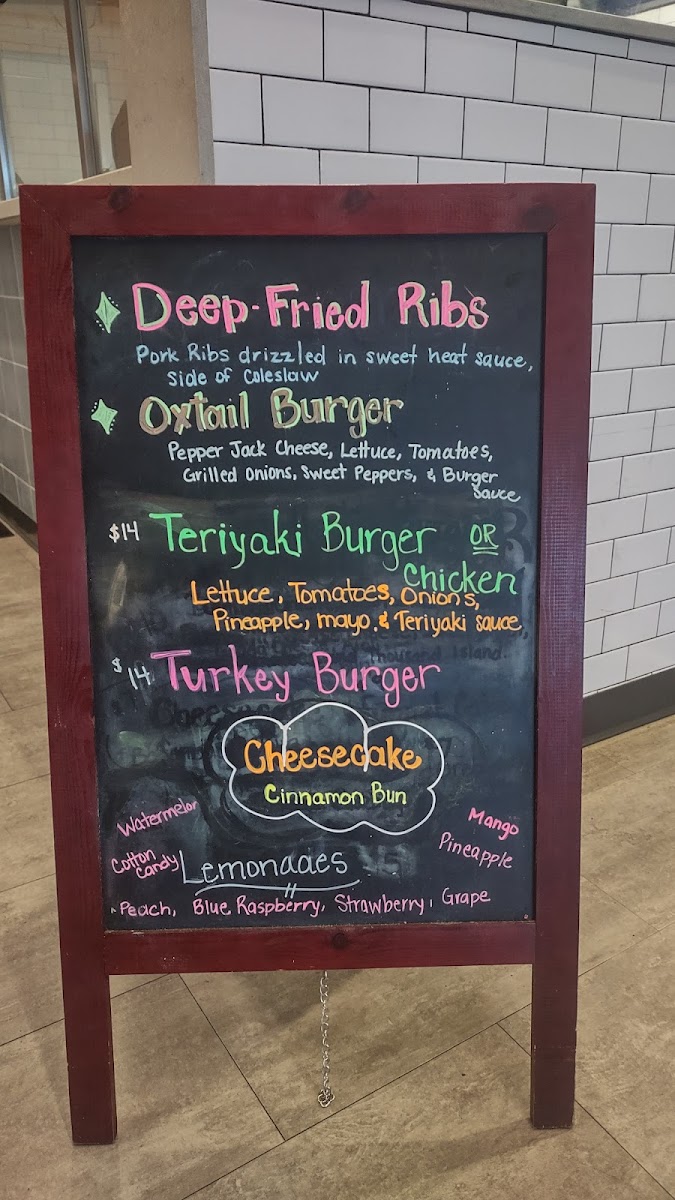 Deep-Fried Ribs
Pork Ribs drizzled in sweet heat sauce,
Side of Coleslaw
Oxtail Burger
Pepper Jack Cheese, Lettuce, Tomatoes,
Grilled Onions, Sweet Peppers, & Burger
Sauce
$14 Teriyaki Burger OR
Chicken
Lettuce, Tomatoes, Onions,
Pineapple, mayo, & Teriyaki sauce
Thousand Island.
$14 Turkey Burger
Cheesecake
Cinnamon Bun
Watermelon
Mango
Cotton
Candy
Pineapple
Lemonades
Peach, Blue Raspberry, Strawberry, Grape